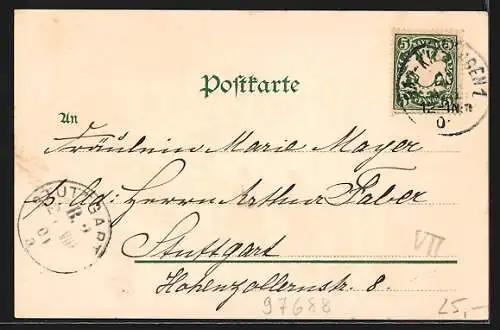 5 BAYERN 5
PFENNIG
Postkarte
An
Fräulein Marie Mayer
p. Ad: Herrn Arthur Faber
Stuttgart
Hohenzollernstr. 8.
STUTTGART
VII
97688
25,-